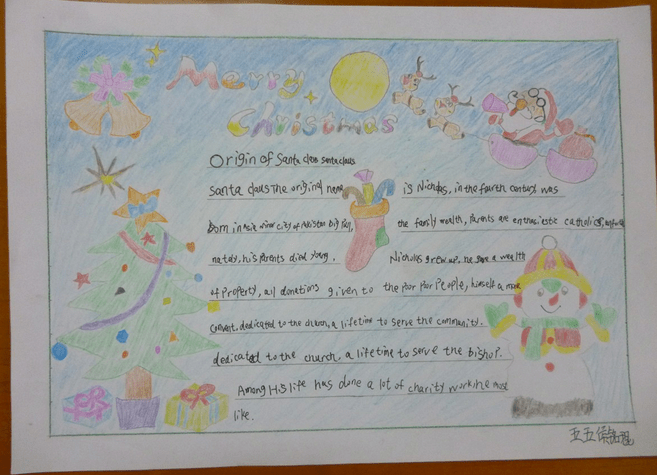 Merry
Christmas
Origin of Santa claus santa claus
santa claus the original name is Nicholas, in the fourth century was
Born in asia minor city of the family wealth, parents are enthusiastic catholics,
nately, his parents died young. Nicholas grew up, he gave a wealth
of Property, all donations given to the Poor Poor People, himself a
convent, dedicated to the church, a lifetime to serve the community.
dedicated to the church, a lifetime to serve the bishop.
Among His life has done a lot of charity work, he most
like.
五五